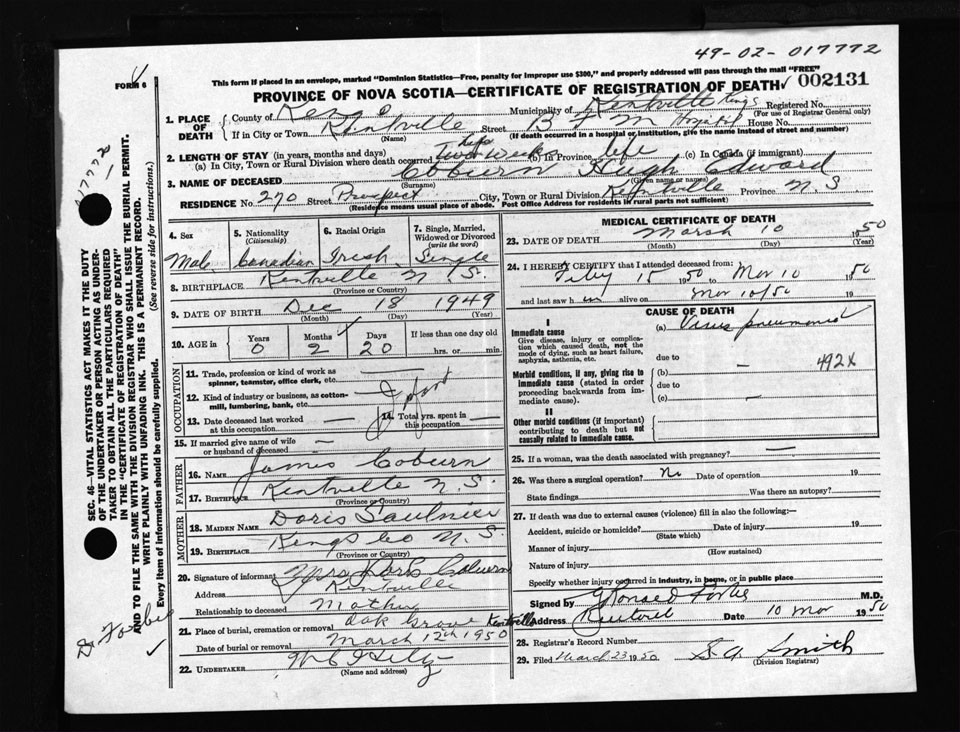 49-02-017772
FORM 6
This form if placed in an envelope, marked "Dominion Statistics—Free, penalty for improper use $300," and properly addressed will pass through the mail "FREE"
PROVINCE OF NOVA SCOTIA—CERTIFICATE OF REGISTRATION OF DEATH 002131
1. PLACE OF DEATH County of Kings Municipality of Kentville Kings Registered No.
(For use of Registrar General only)
If in City or Town Kentville Street B F M Hospital House No.
(Name) (If death occurred in a hospital or institution, give the name instead of street and number)
2. LENGTH OF STAY (in years, months and days)
(a) In City, Town or Rural Division where death occurred Two Weeks (b) In Province life (c) In Canada (if immigrant)
3. NAME OF DECEASED Coburn Hugh Edward
(Surname) (Given name or names)
RESIDENCE No. 270 Street Prospect City, Town or Rural Division Kentville Province N.S.
(Residence means usual place of abode. Post Office Address for residents in rural parts not sufficient)
4. Sex 5. Nationality (Citizenship) 6. Racial Origin 7. Single, Married, Widowed or Divorced (write the word)
Male Canadian Irish Single
8. BIRTHPLACE Kentville N.S.
(Province or Country)
9. DATE OF BIRTH Dec 18 1949
(Month) (Day) (Year)
10. AGE in Years Months Days If less than one day old
0 2 20 hrs. or min.
OCCUPATION
11. Trade, profession or kind of work as spinner, teamster, office clerk, etc. —
12. Kind of industry or business, as cotton-mill, lumbering, bank, etc.
13. Date deceased last worked at this occupation — 14. Total yrs. spent in this occupation
15. If married give name of wife or husband of deceased —
FATHER
16. Name James Coburn
17. Birthplace Kentville N.S.
(Province or Country)
MOTHER
18. MAIDEN NAME Doris Saulnier
19. BIRTHPLACE Kings Co N.S.
(Province or Country)
20. Signature of informant Mrs Doris Coburn
Address Kentville
Relationship to deceased Mother
21. Place of burial, cremation or removal Oak Grove Kentville
Date of burial or removal March 12th 1950
22. UNDERTAKER
(Name and address)
MEDICAL CERTIFICATE OF DEATH
23. DATE OF DEATH March 10 1950
(Month) (Day) (Year)
24. I HEREBY CERTIFY that I attended deceased from:
Feby 15 1950 to Mar 10 1950
and last saw him alive on Mar 10/50 19
CAUSE OF DEATH
I
Immediate cause (a) Virus pneumonia
Give disease, injury or complication which caused death, not the mode of dying, such as heart failure, asphyxia, asthenia, etc.
due to 492X
Morbid conditions, if any, giving rise to immediate cause (stated in order proceeding backwards from immediate cause).
(b) —
due to
(c) —
II
Other morbid conditions (if important) contributing to death but not causally related to immediate cause.
25. If a woman, was the death associated with pregnancy? —
26. Was there a surgical operation? No Date of operation 19
State findings Was there an autopsy?
27. If death was due to external causes (violence) fill in also the following:—
Accident, suicide or homicide? Date of injury 19
(State which)
Manner of injury
(How sustained)
Nature of injury
Specify whether injury occurred in industry, in home, or in public place
Signed by M.D.
Address Kentville Date 10 Mar 1950
28. Registrar's Record Number
29. Filed March 23 1950 S.A. Smith
(Division Registrar)
SEC. 46—VITAL STATISTICS ACT MAKES IT THE DUTY
OF THE UNDERTAKER OR PERSON ACTING AS UNDER-
TAKER TO OBTAIN ALL THE PARTICULARS REQUIRED
IN THE "CERTIFICATE OF REGISTRATION OF DEATH"
AND TO FILE THE SAME WITH THE DIVISION REGISTRAR WHO SHALL ISSUE THE BURIAL PERMIT.
WRITE PLAINLY WITH UNFADING INK. THIS IS A PERMANENT RECORD.
Every item of information should be carefully supplied. (See reverse side for instructions.)
17772